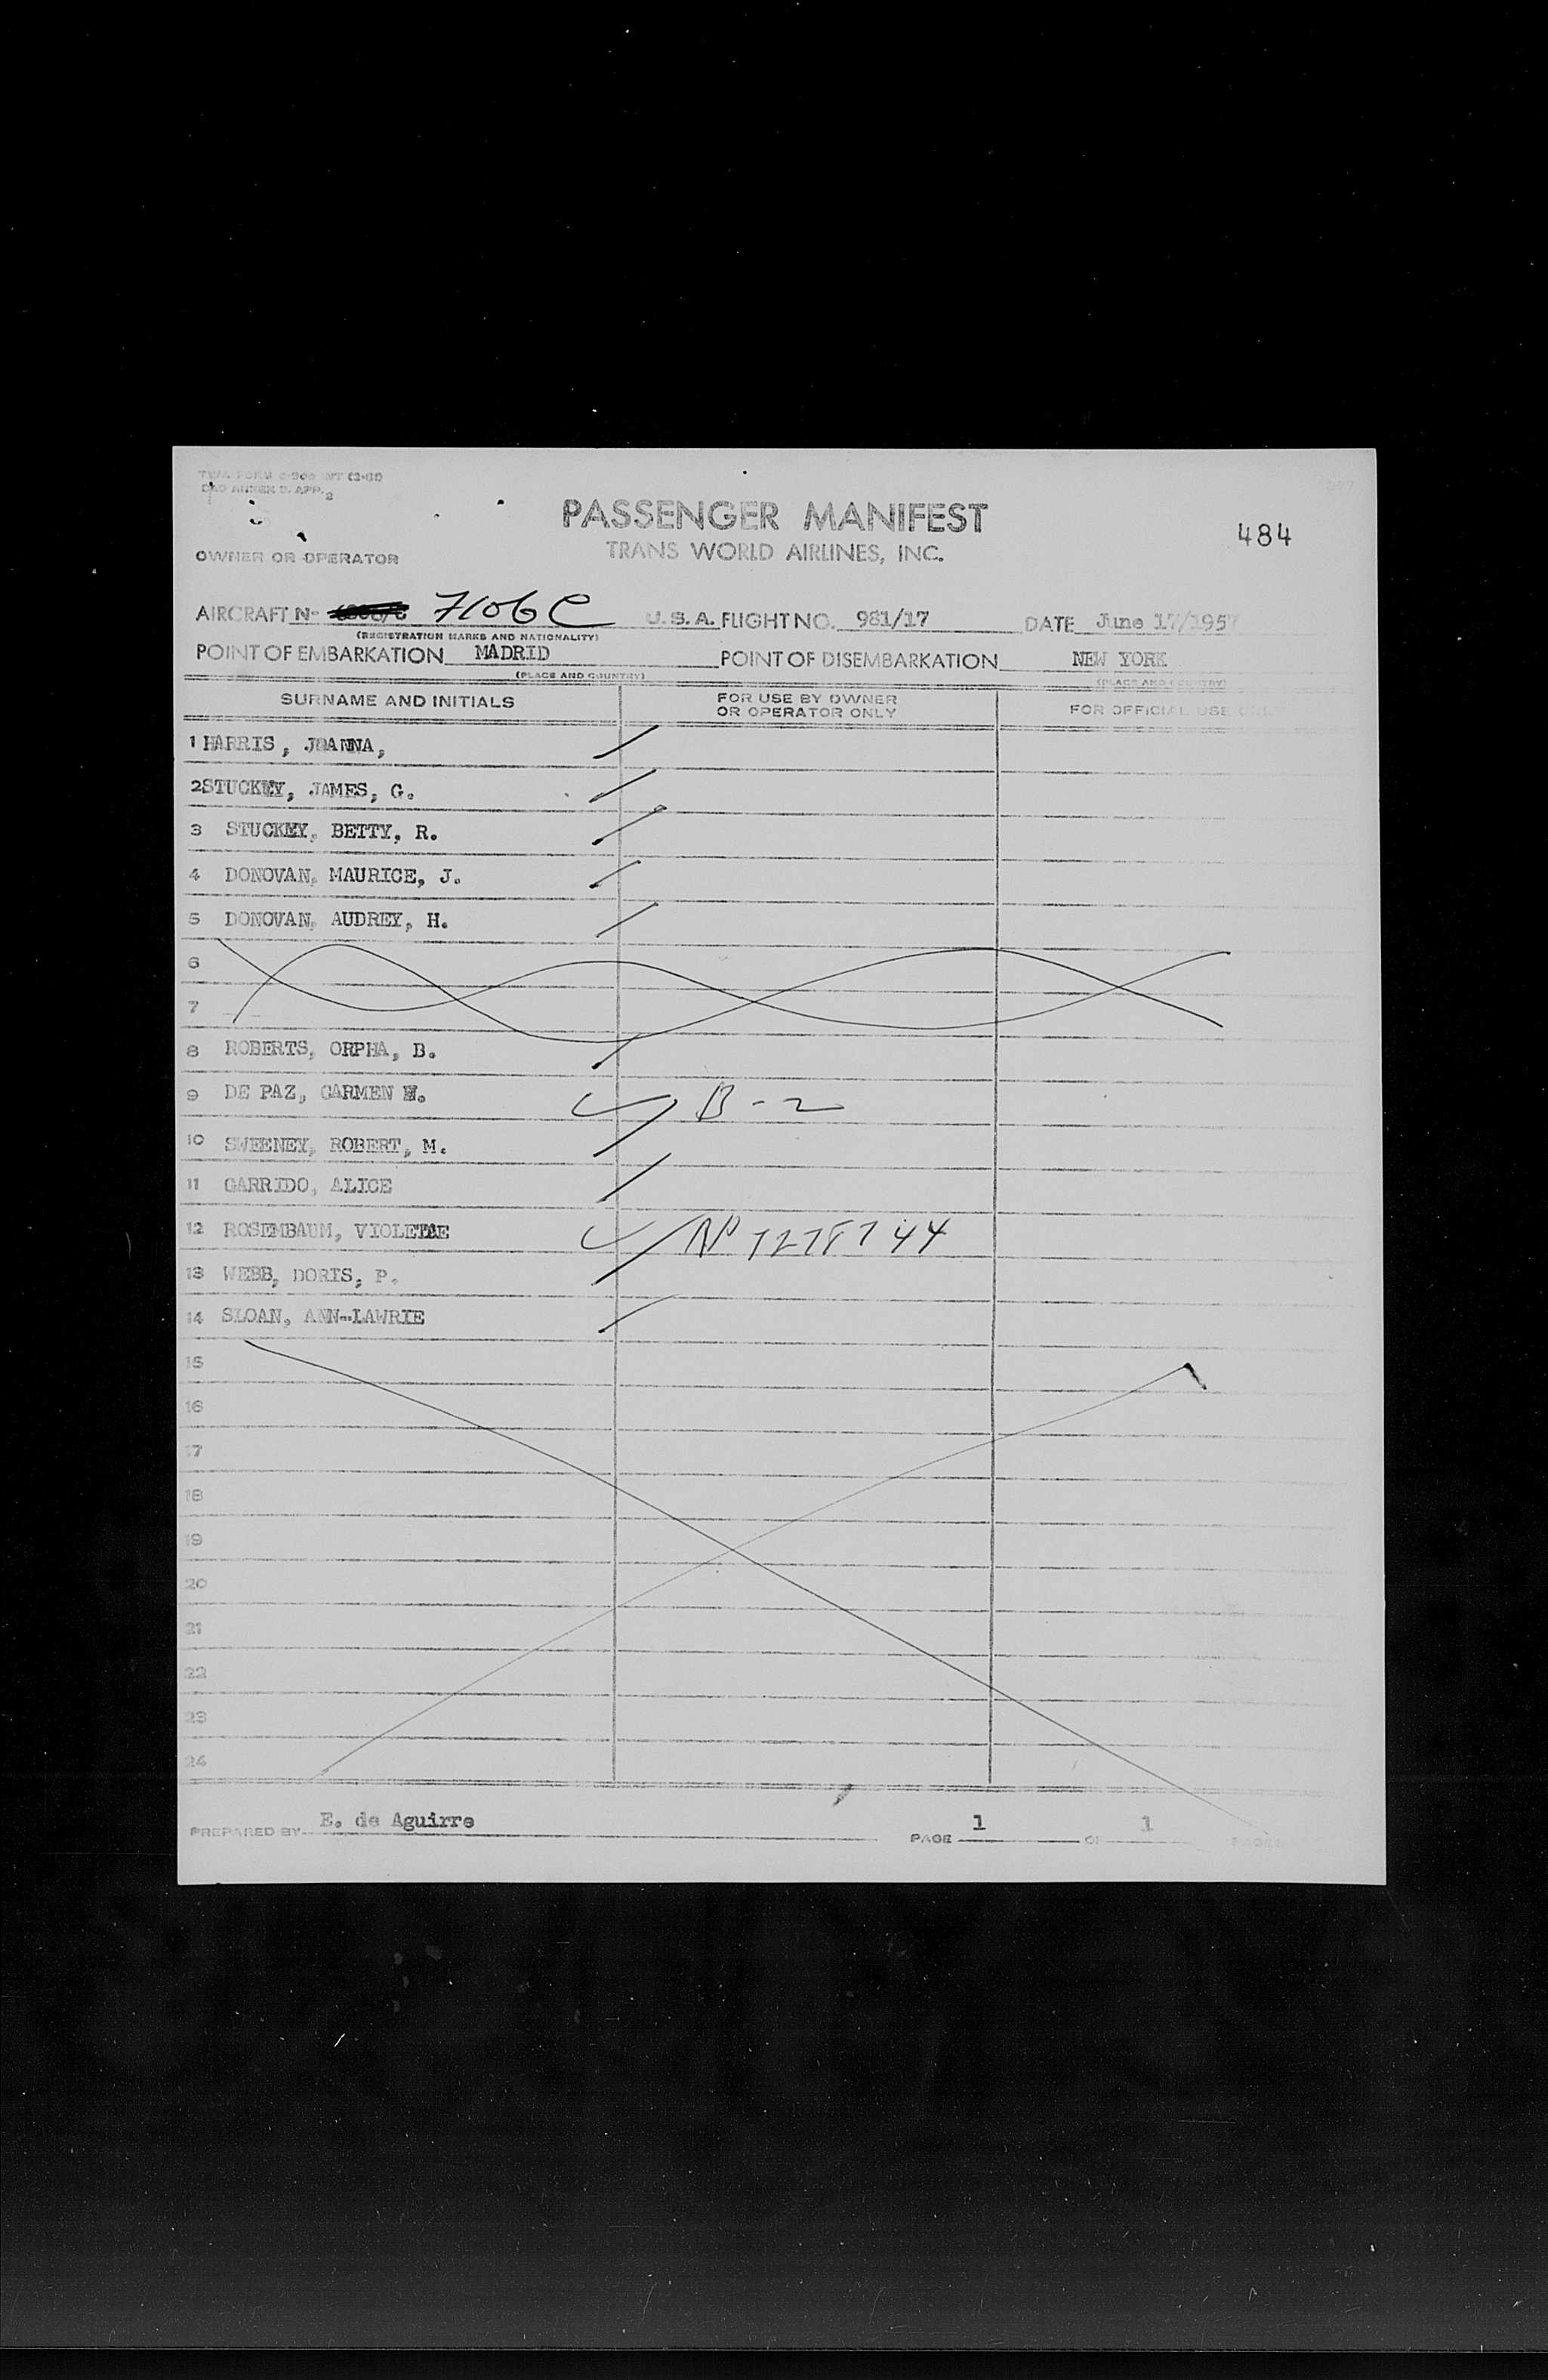 TWA FORM
PASSENGER MANIFEST
484
TRANS WORLD AIRLINES, INC.
OWNER OR OPERATOR
AIRCRAFT N- 7106C U.S.A. FLIGHT NO. 981/17 DATE June 17/1957
(REGISTRATION MARKS AND NATIONALITY)
POINT OF EMBARKATION MADRID POINT OF DISEMBARKATION NEW YORK
(PLACE AND COUNTRY) (PLACE AND COUNTRY)
SURNAME AND INITIALS FOR USE BY OWNER OR OPERATOR ONLY FOR OFFICIAL USE ONLY
1 HARRIS, JOANNA,
2 STUCKEY, JAMES, G.
3 STUCKEY, BETTY, R.
4 DONOVAN, MAURICE, J.
5 DONOVAN, AUDREY, H.
6
7
8 ROBERTS, ORPHA, B.
9 DE PAZ, CARMEN B-2
10 SWEENEY, ROBERT, M.
11 GARRIDO, ALICE
12 ROSEMBAUM,
13 WEBB, DORIS, P.
14 SLOAN, ANN-LAWRIE
15
16
17
18
19
20
21
22
23
24
PREPARED BY E. de Aguirre PAGE 1 OF 1 PAGES